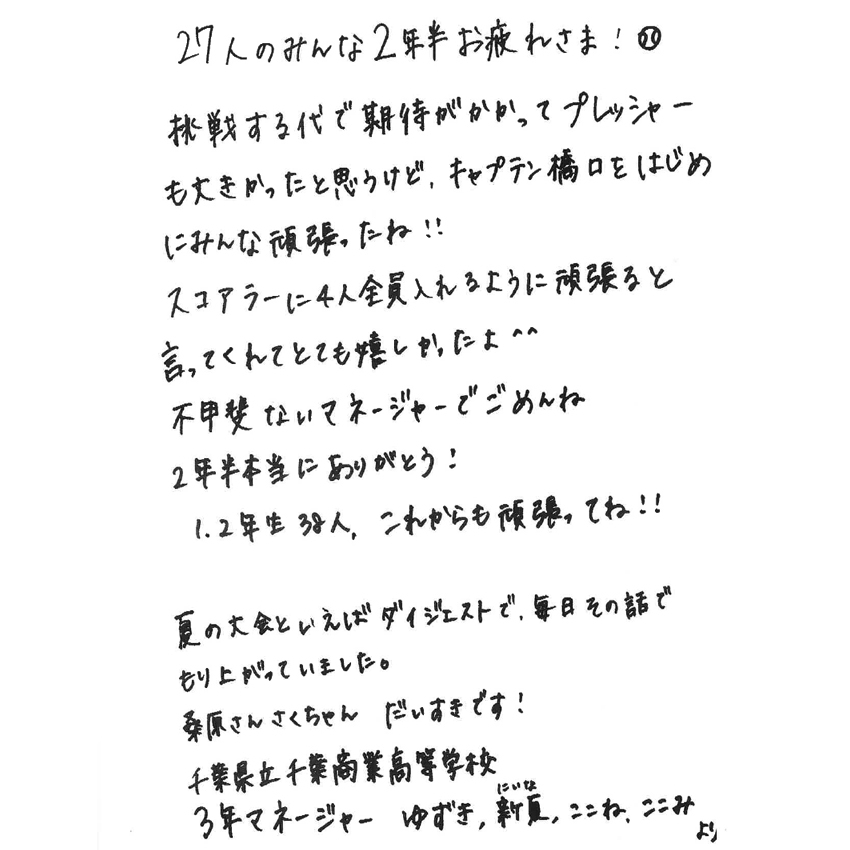 27人のみんな2年半お疲れさま！
挑戦する代で期待がかかってプレッシャー
も大きかったと思うけど、キャプテン橋口をはじめ
にみんな頑張ったね!!
スコアラーに4人全員入れるように頑張ると
言ってくれてとても嬉しかったよ^^
不甲斐ないマネージャーでごめんね
2年半本当にありがとう！
1.2年生38人、これからも頑張ってね!!
夏の大会といえばダイジェストで、毎日その話で
もり上がっていました。
桑原さんさくちゃん だいすきです！
千葉県立千葉商業高等学校
にいな
3年マネージャー ゆずき，新夏，ここね、ここみ
より